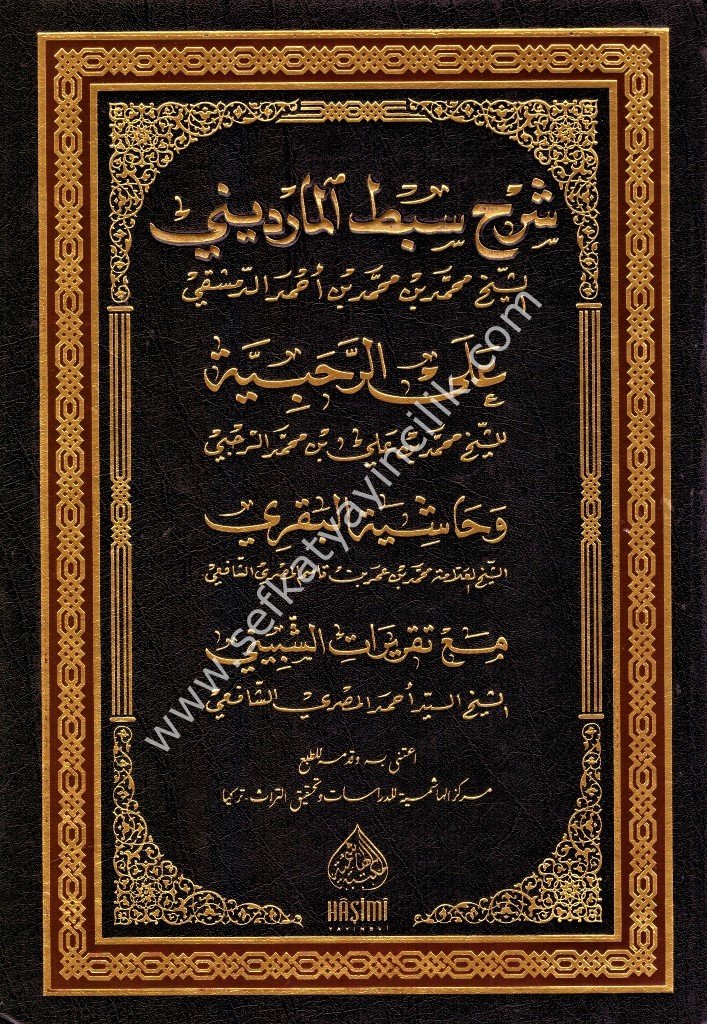 شرح سبط المارديني
للشيخ محمد بن محمد بن أحمد الدمشقي
على الرحبية
للشيخ محمد بن علي بن محمد الرحبي
وحاشية البقري
الشيخ العلامة محمد بن عمر بن قاسم المصري الشافعي
مع تقريرات الشبيني
الشيخ السيد أحمد المصري الشافعي
اعتنى به وقدمه للطبع
مركز الهاشمية للدراسات وتحقيق التراث - تركيا
HÂŞİMÎ
YAYINEVİ
www.sefkatyayincilik.com